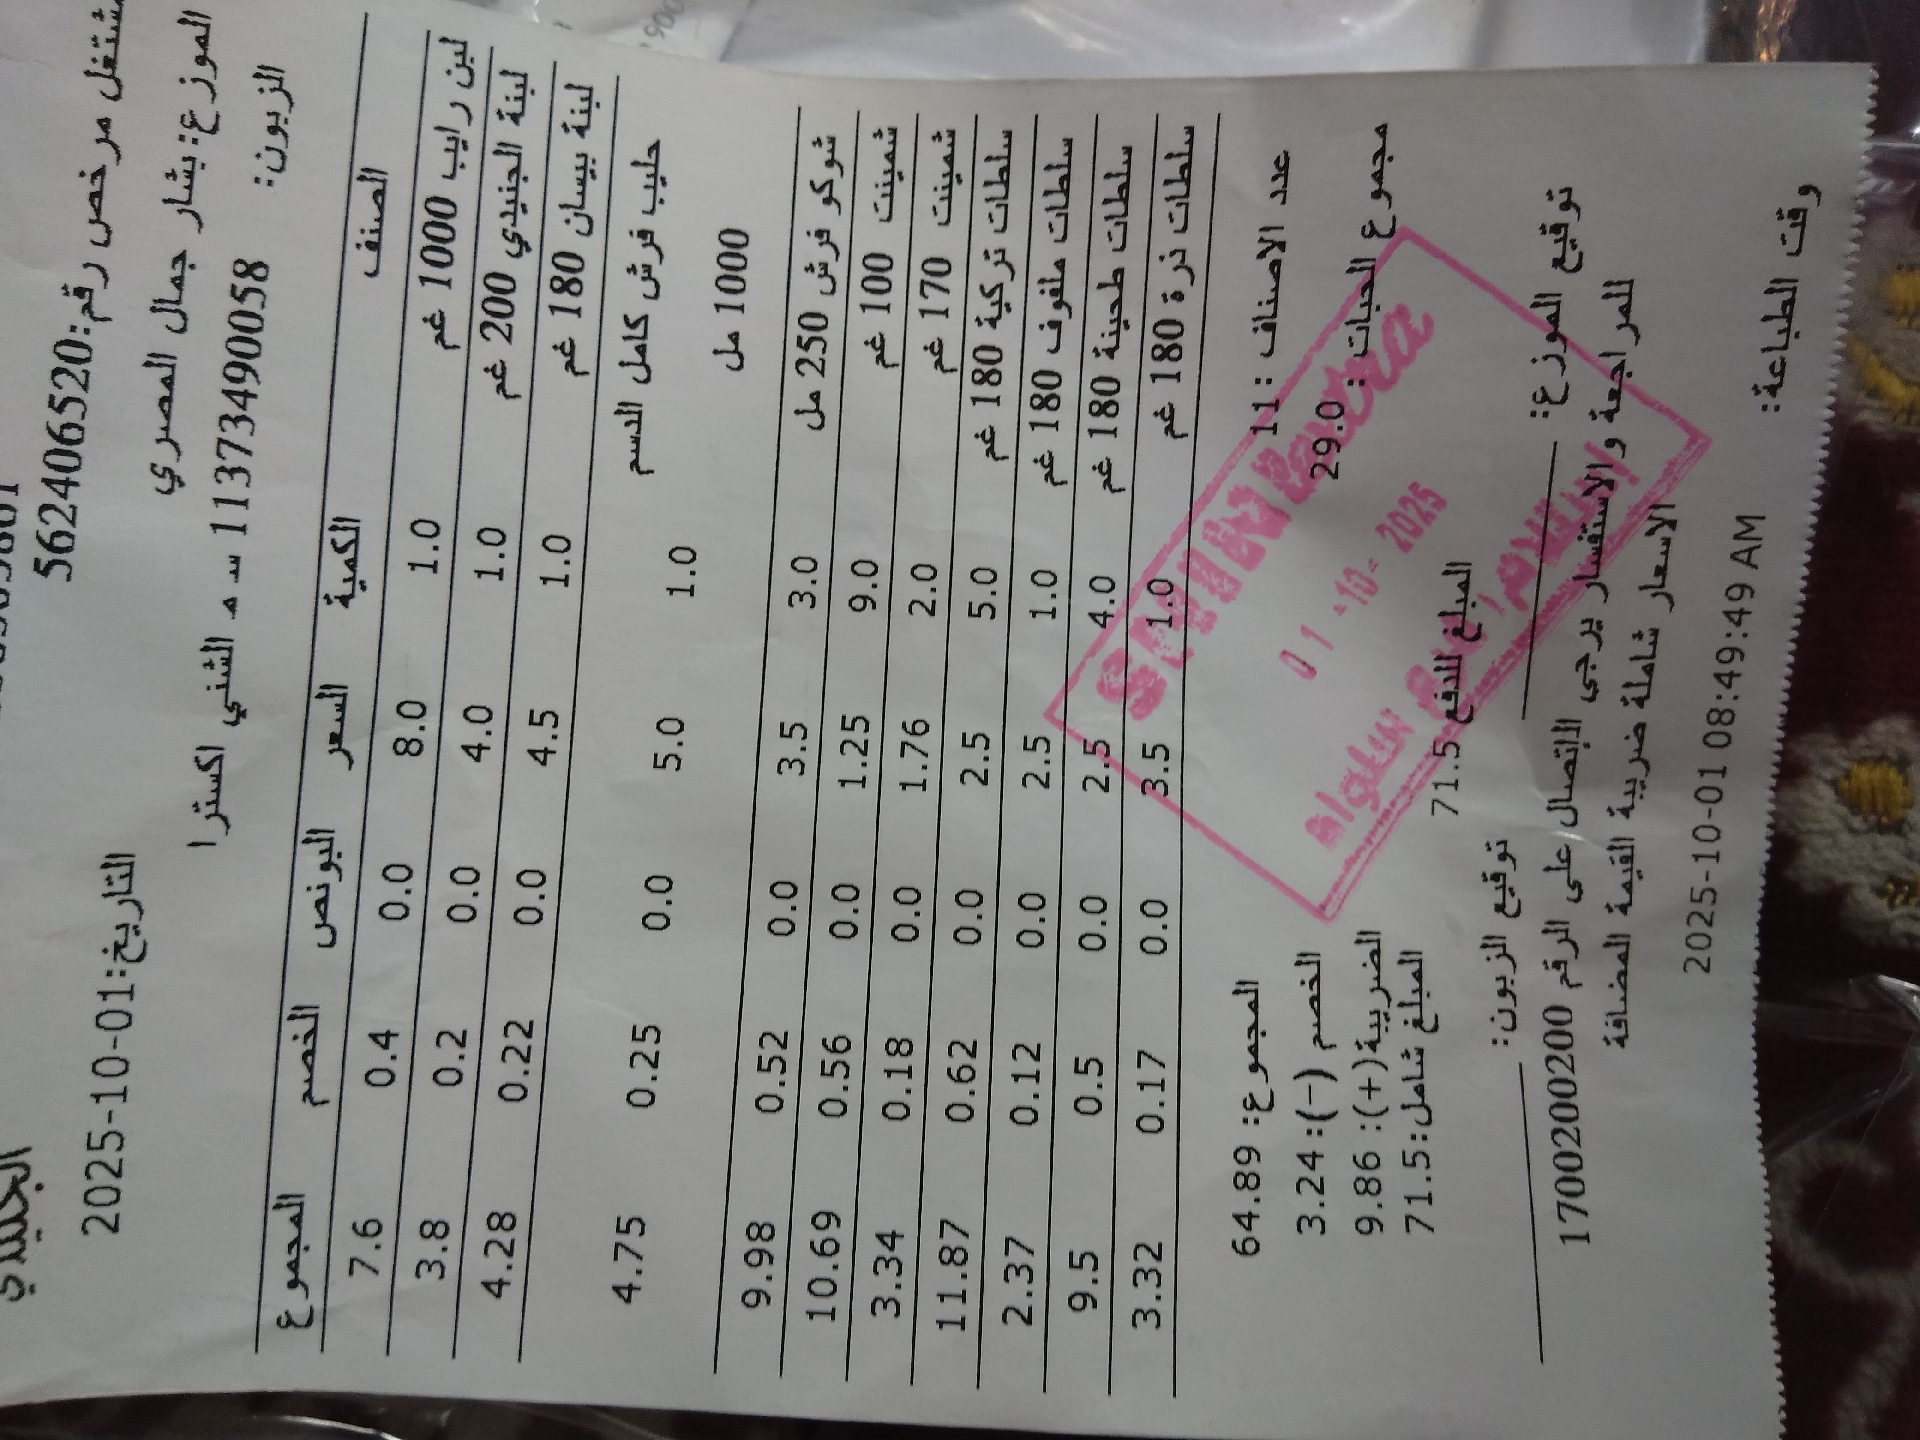 الجنيدي
مشتغل مرخص رقم:562406520
التاريخ:2025-10-01
الموزع:بشار جمال المصري
الزبون: 113734900058 سـ مـ الشني اكسترا
الصنف الكمية السعر البونص الخصم المجموع
لبن رايب 1000 غم 1.0 8.0 0.0 0.4 7.6
لبنة الجنيدي 200 غم 1.0 4.0 0.0 0.2 3.8
لبنة بيسان 180 غم 1.0 4.5 0.0 0.22 4.28
حليب فرش كامل الدسم
1000 مل 1.0 5.0 0.0 0.25 4.75
شوكو فرش 250 مل 3.0 3.5 0.0 0.52 9.98
شمينت 100 غم 9.0 1.25 0.0 0.56 10.69
شمينت 170 غم 2.0 1.76 0.0 0.18 3.34
سلطات تركية 180 غم 5.0 2.5 0.0 0.62 11.87
سلطات ملفوف 180 غم 1.0 2.5 0.0 0.12 2.37
سلطات طحينة 180 غم 4.0 2.5 0.0 0.5 9.5
سلطات ذرة 180 غم 1.0 3.5 0.0 0.17 3.32
عدد الاصناف : 11 المجموع: 64.89
مجموع الحبات : 29.0 الخصم (-): 3.24
الضريبة(+): 9.86
المبلغ للدفع 71.5 المبلغ شامل:71.5
توقيع الموزع: توقيع الزبون:
للمراجعة والاستفسار يرجى الاتصال على الرقم 1700200200
الاسعار شاملة ضريبة القيمة المضافة
وقت الطباعة: 2025-10-01 08:49:49 AM
01 -10- 2025